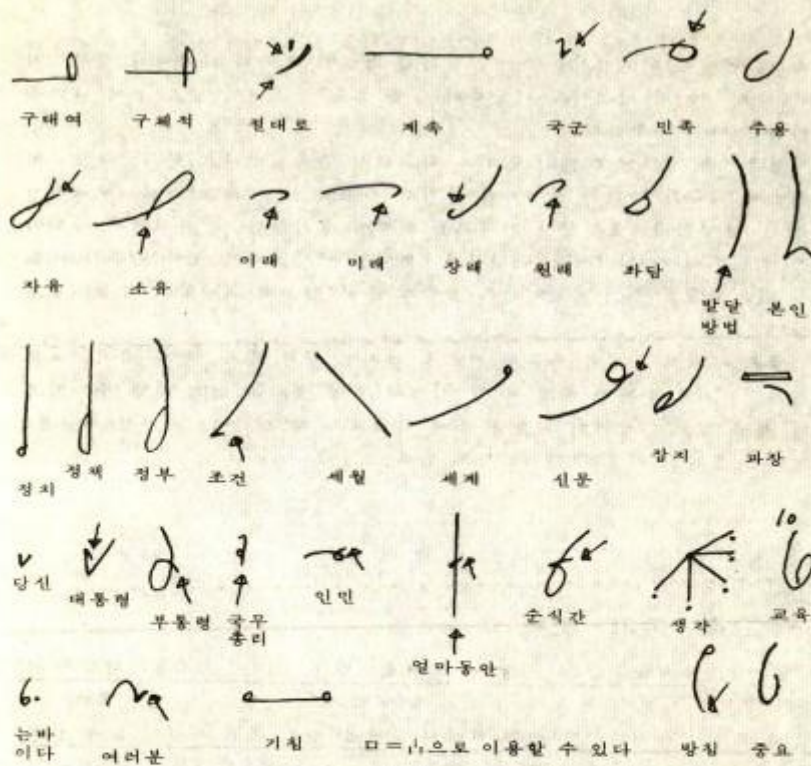 구태여 구체적 절대로 계속 국군 민족 주용
자유 소유 이래 미래 장래 원래 좌담 발달 방법 본인
정치 정책 정부 조건 세월 세계 신문 잡지 과장
10
당신 대통령 부통령 국무총리 인민 얼마동안 순식간 생각 교육
는바이다 여러분 기침 ㅁ= 으로 이용할 수 있다 방침 중요